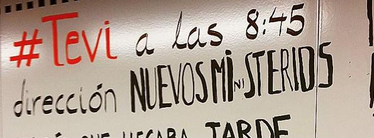 #Tevi a las 8:45
dirección NUEVOS MINISTERIOS
QUE LLEGABA TARDE